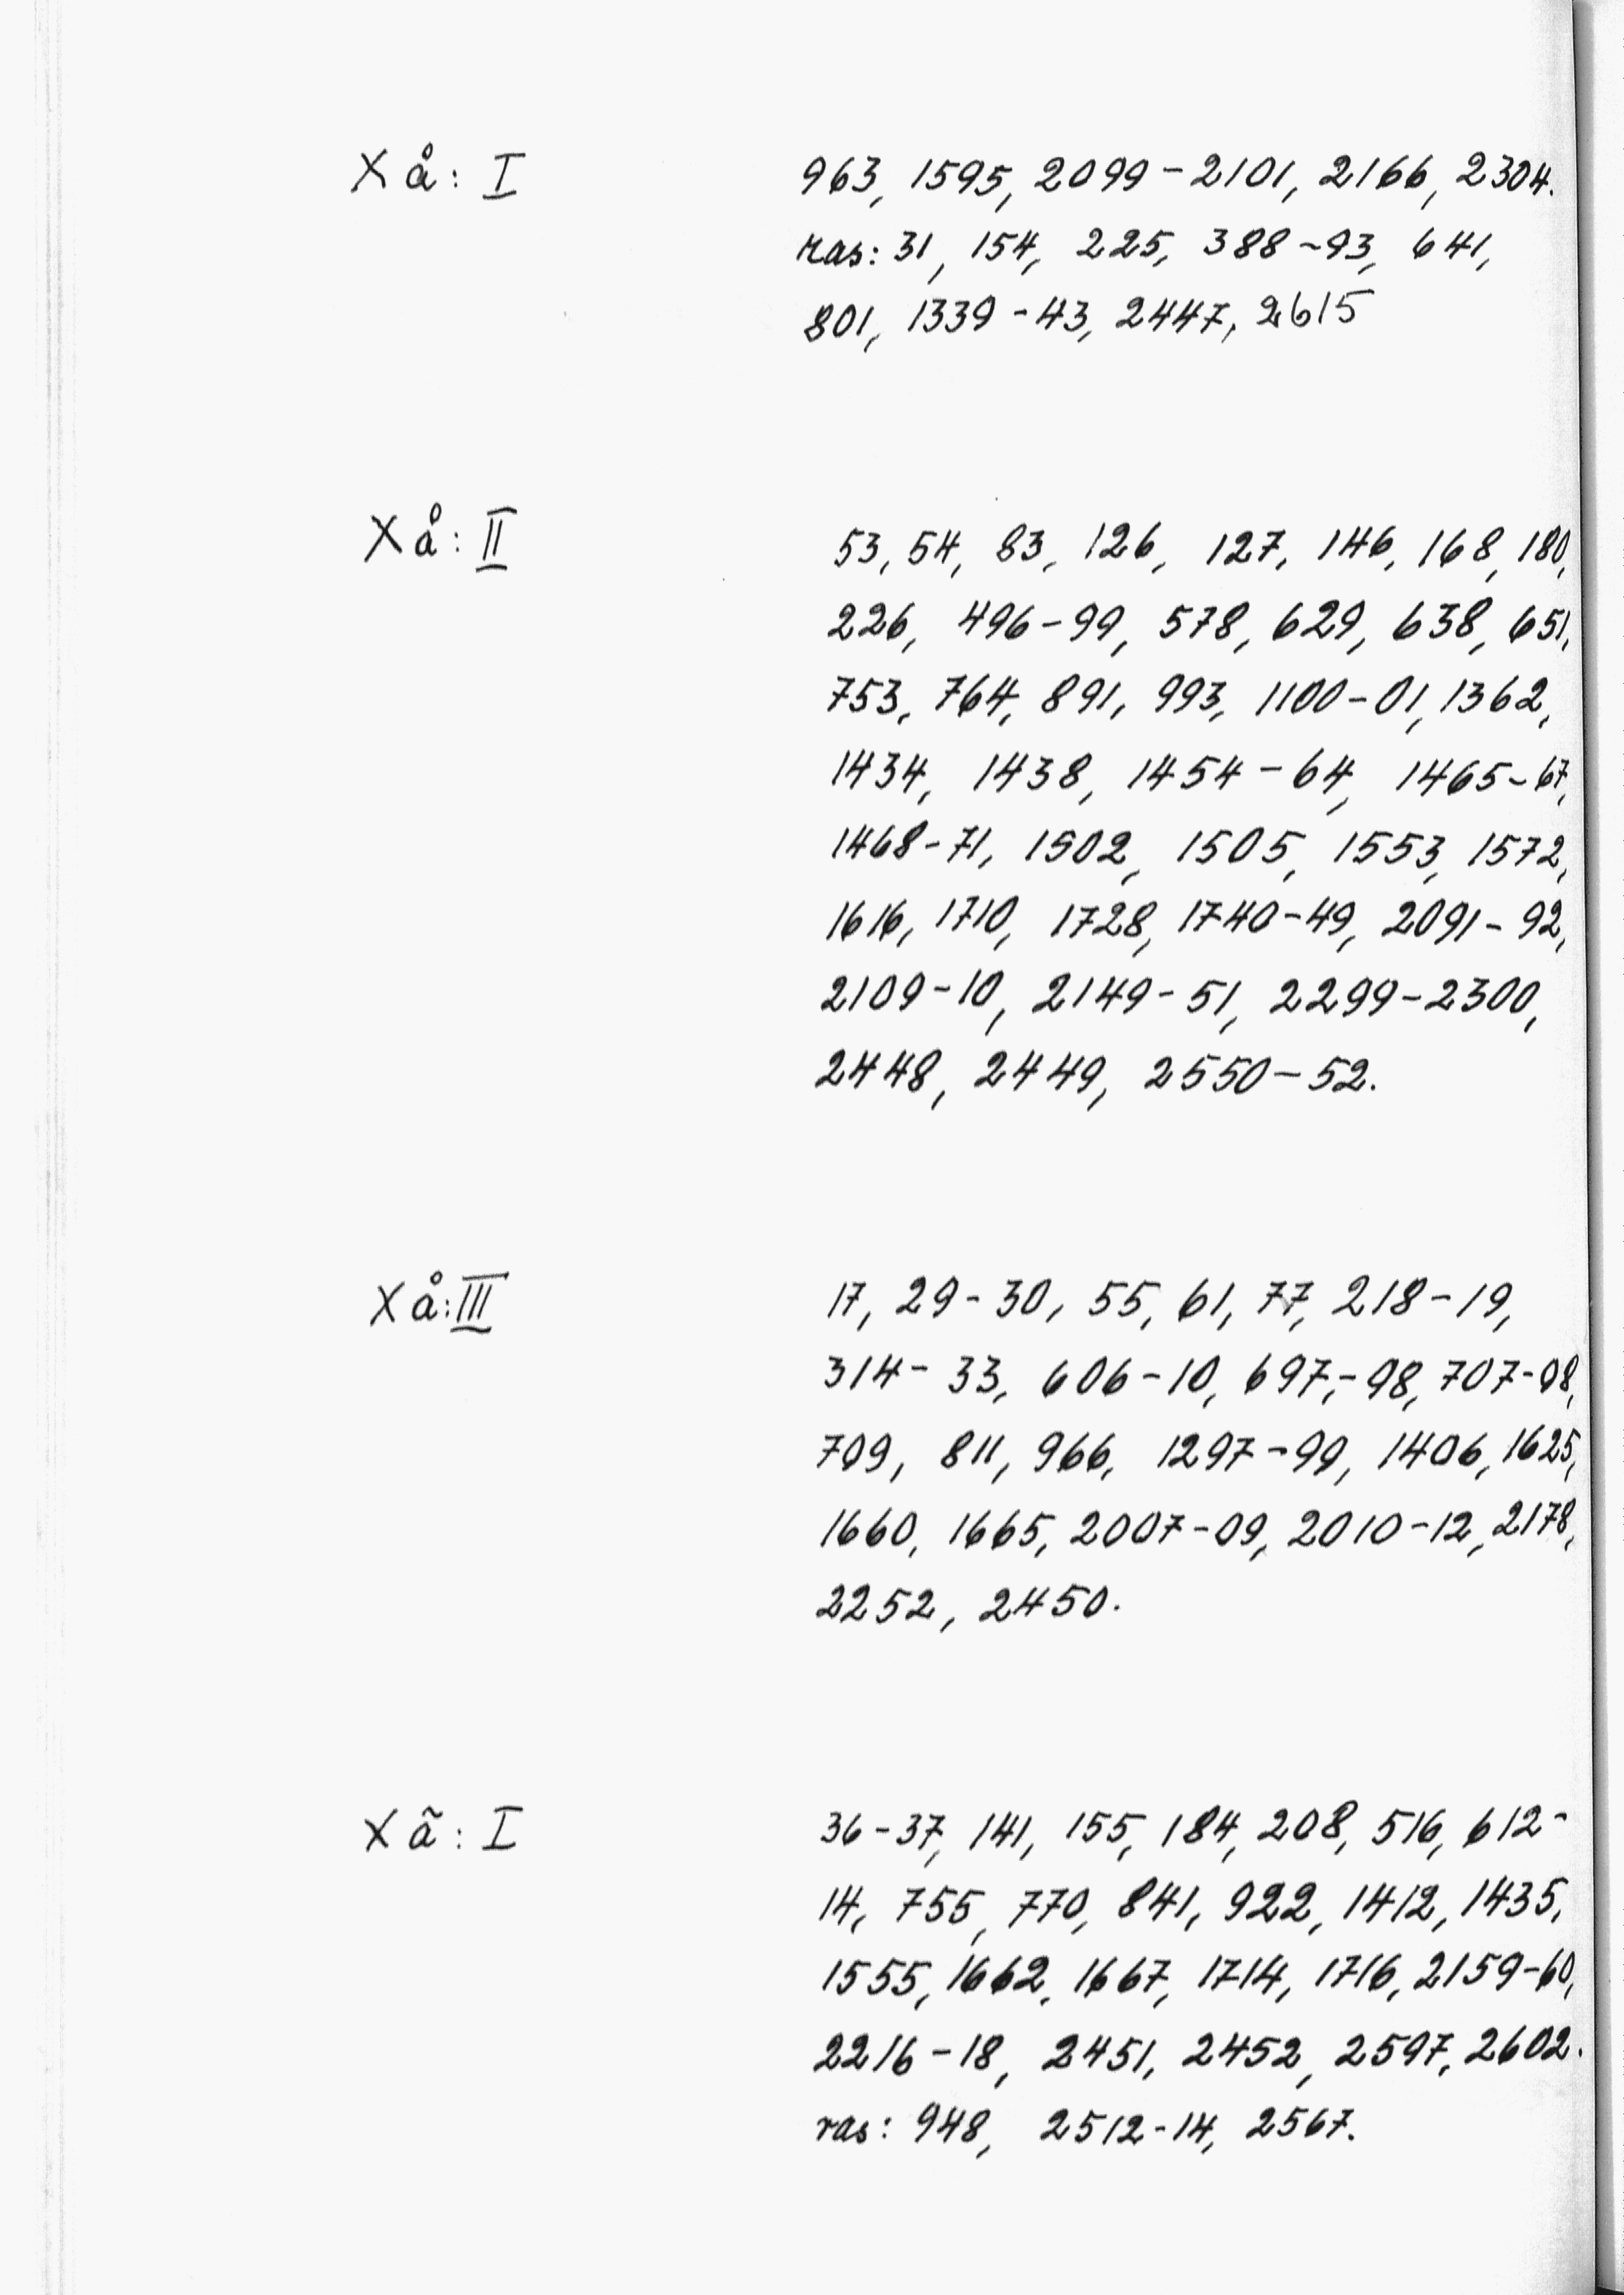 X å: I 963, 1595, 2099-2101, 2166, 2304.
ras: 31, 154, 225, 388-93, 641,
801, 1339-43, 2447, 2615
X å: II 53, 54, 83, 126, 127, 146, 168, 180,
226, 496-99, 578, 629, 638, 651,
753, 764, 891, 993, 1100-01, 1362,
1434, 1438, 1454-64, 1465-67,
1468-71, 1502, 1505, 1553, 1572,
1616, 1710, 1728, 1740-49, 2091-92,
2109-10, 2149-51, 2299-2300,
2448, 2449, 2550-52.
X å: III 17, 29-30, 55, 61, 77, 218-19,
314-33, 606-10, 697,-98, 707-08,
709, 811, 966, 1297-99, 1406, 1625,
1660, 1665, 2007-09, 2010-12, 2178,
2252, 2450.
X ã: I 36-37, 141, 155, 184, 208, 516, 612-
14, 755, 770, 841, 922, 1412, 1435,
1555, 1662, 1667, 1714, 1716, 2159-60,
2216-18, 2451, 2452, 2597, 2602.
ras: 948, 2512-14, 2567.